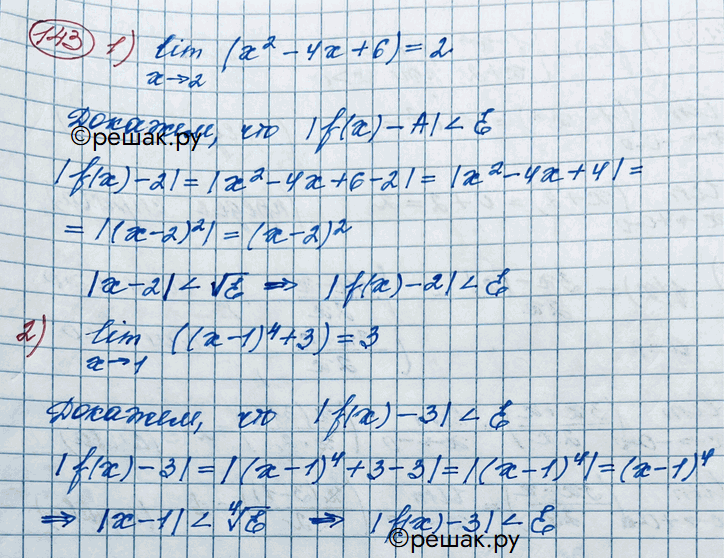 143 1) lim (x² - 4x + 6) = 2
x→2
Докажем, что |f(x) - A| < ℰ
©решак.ру
|f(x) - 2| = |x² - 4x + 6 - 2| = |x² - 4x + 4| =
= |(x - 2)²| = (x - 2)²
|x - 2| < √ℰ ⇒ |f(x) - 2| < ℰ
2) lim ((x - 1)⁴ + 3) = 3
x→1
Докажем, что |f(x) - 3| < ℰ
|f(x) - 3| = |(x - 1)⁴ + 3 - 3| = |(x - 1)⁴| = (x - 1)⁴
⇒ |x - 1| < ⁴√ℰ ⇒ |f(x) - 3| < ℰ
©решак.ру